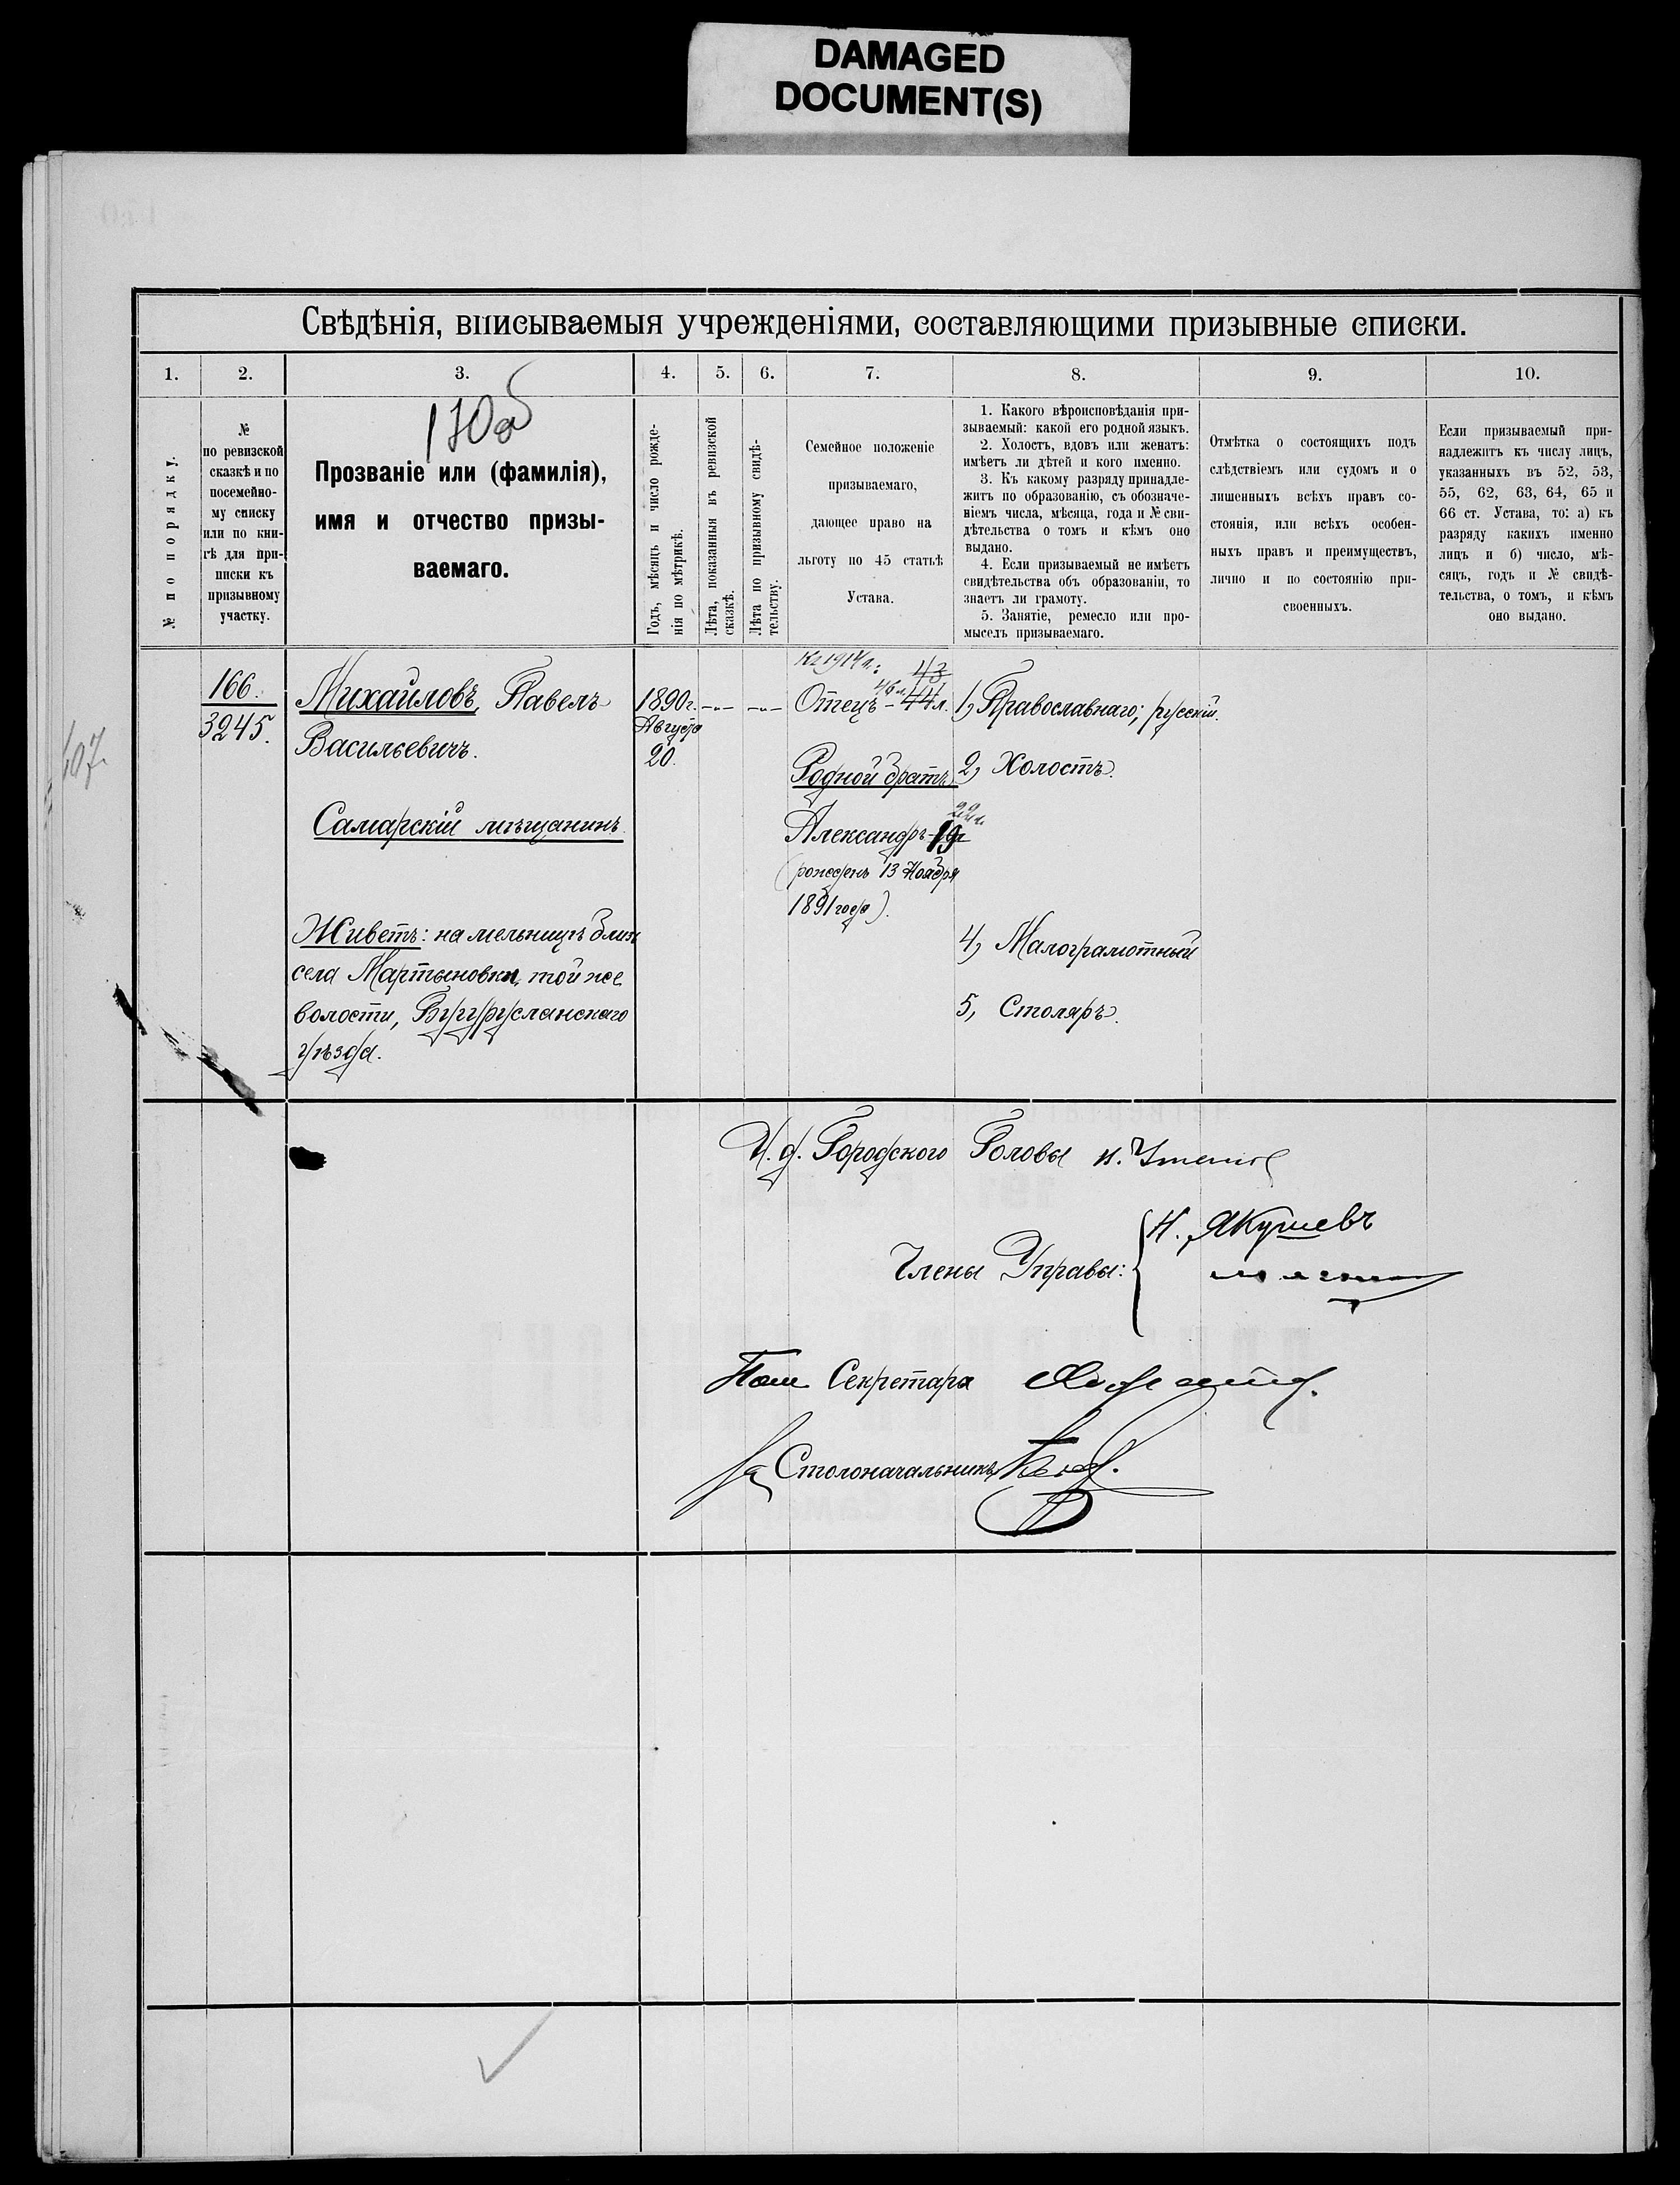 DAMAGED
DOCUMENT(S)
Свѣдѣнія, вписываемыя учрежденіями, составляющими призывные списки.
1. 2. 3. 4. 5. 6. 7. 8. 9. 10.
№ по порядку.
№
по ревизской
сказкѣ и по
посемейно-
му списку
или по кни-
гѣ для при-
писки къ
призывному
участку.
Прозваніе или (фамилія),
имя и отчество призы-
ваемаго.
Годъ, мѣсяцъ и число рожде-
нія по мѣтрикѣ.
Лѣта, показанныя въ ревизской
сказкѣ.
Лѣта по призывному свидѣ-
тельству.
Семейное положеніе
призываемаго,
дающее право на
льготу по 45 статьѣ
Устава.
1. Какого вѣроисповѣданія при-
зываемый: какой его родной языкъ.
2. Холостъ, вдовъ или женатъ:
имѣетъ ли дѣтей и кого именно.
3. Къ какому разряду принадле-
житъ по образованію, съ обозначе-
ніемъ числа, мѣсяца, года и № сви-
дѣтельства о томъ и кѣмъ оно
выдано.
4. Если призываемый не имѣетъ
свидѣтельства объ образованіи, то
знаетъ ли грамоту.
5. Занятіе, ремесло или про-
мыселъ призываемаго.
Отмѣтка о состоящихъ подъ
слѣдствіемъ или судомъ и о
лишенныхъ всѣхъ правъ со-
стоянія, или всѣхъ особен-
ныхъ правъ и преимуществъ,
лично и по состоянію при-
своенныхъ.
Если призываемый при-
надлежитъ къ числу лицъ,
указанныхъ въ 52, 53,
55, 62, 63, 64, 65 и
66 ст. Устава, то: а) къ
разряду какихъ именно
лицъ и б) число, мѣ-
сяцъ, годъ и № свидѣ-
тельства, о томъ, и кѣмъ
оно выдано.
166.
3245.
Михайловъ, Павелъ
Васильевичъ.
Самарскій мѣщанинъ.
Живетъ: на мельницѣ близъ
села Мартыновки, той же
волости, Бугурусланскаго
уѣзда.
1890 г.
Августа
20.
43
46 л.
Отецъ – 44 л.
Родной братъ
22 л.
Александръ – 19
(рожденъ 13 Ноября
1891 года).
1, Православнаго; русскій.
2, Холостъ.
4, Малограмотный
5, Столяръ.
И. д. Городского Головы
Члены Управы:
Н. Якушевъ
Пом Секретаря
За Столоначальника